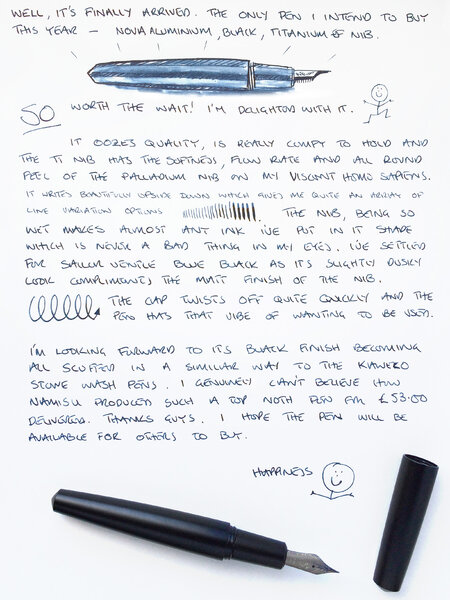 WELL, IT'S FINALLY ARRIVED. THE ONLY PEN I INTEND TO BUY
THIS YEAR – NOVA ALUMINIUM, BLACK, TITANIUM EF NIB.
SO WORTH THE WAIT! I'M DELIGHTED WITH IT.
IT OOZES QUALITY, IS REALLY COMFY TO HOLD AND
THE TI NIB HAS THE SOFTNESS, FLOW RATE AND ALL ROUND
FEEL OF THE PALLADIUM NIB ON MY VISCONTI HOMO SAPIENS.
IT WRITES BEAUTIFULLY UPSIDE DOWN WHICH GIVES ME QUITE AN ARRAY OF
LINE VARIATION OPTIONS. THE NIB, BEING SO
WET MAKES ALMOST ANY INK I'VE PUT IN IT SHADE
WHICH IS NEVER A BAD THING IN MY EYES. I'VE SETTLED
FOR SAILOR YENTLE BLUE BLACK AS ITS SLIGHTLY DUSKY
LOOK COMPLIMENTS THE MATT FINISH OF THE NIB.
THE CAP TWISTS OFF QUITE QUICKLY AND THE
PEN HAS THAT VIBE OF WANTING TO BE USED.
I'M LOOKING FORWARD TO ITS BLACK FINISH BECOMING
ALL SCUFFED IN A SIMILAR WAY TO THE KAWEKO
STONE WASH PENS. I GENUINELY CAN'T BELIEVE HOW
NAMISU PRODUCED SUCH A TOP NOTH PEN FOR £53.00
DELIVERED. THANKS GUYS. I HOPE THE PEN WILL BE
AVAILABLE FOR OTHERS TO BUY.
HAPPINESS